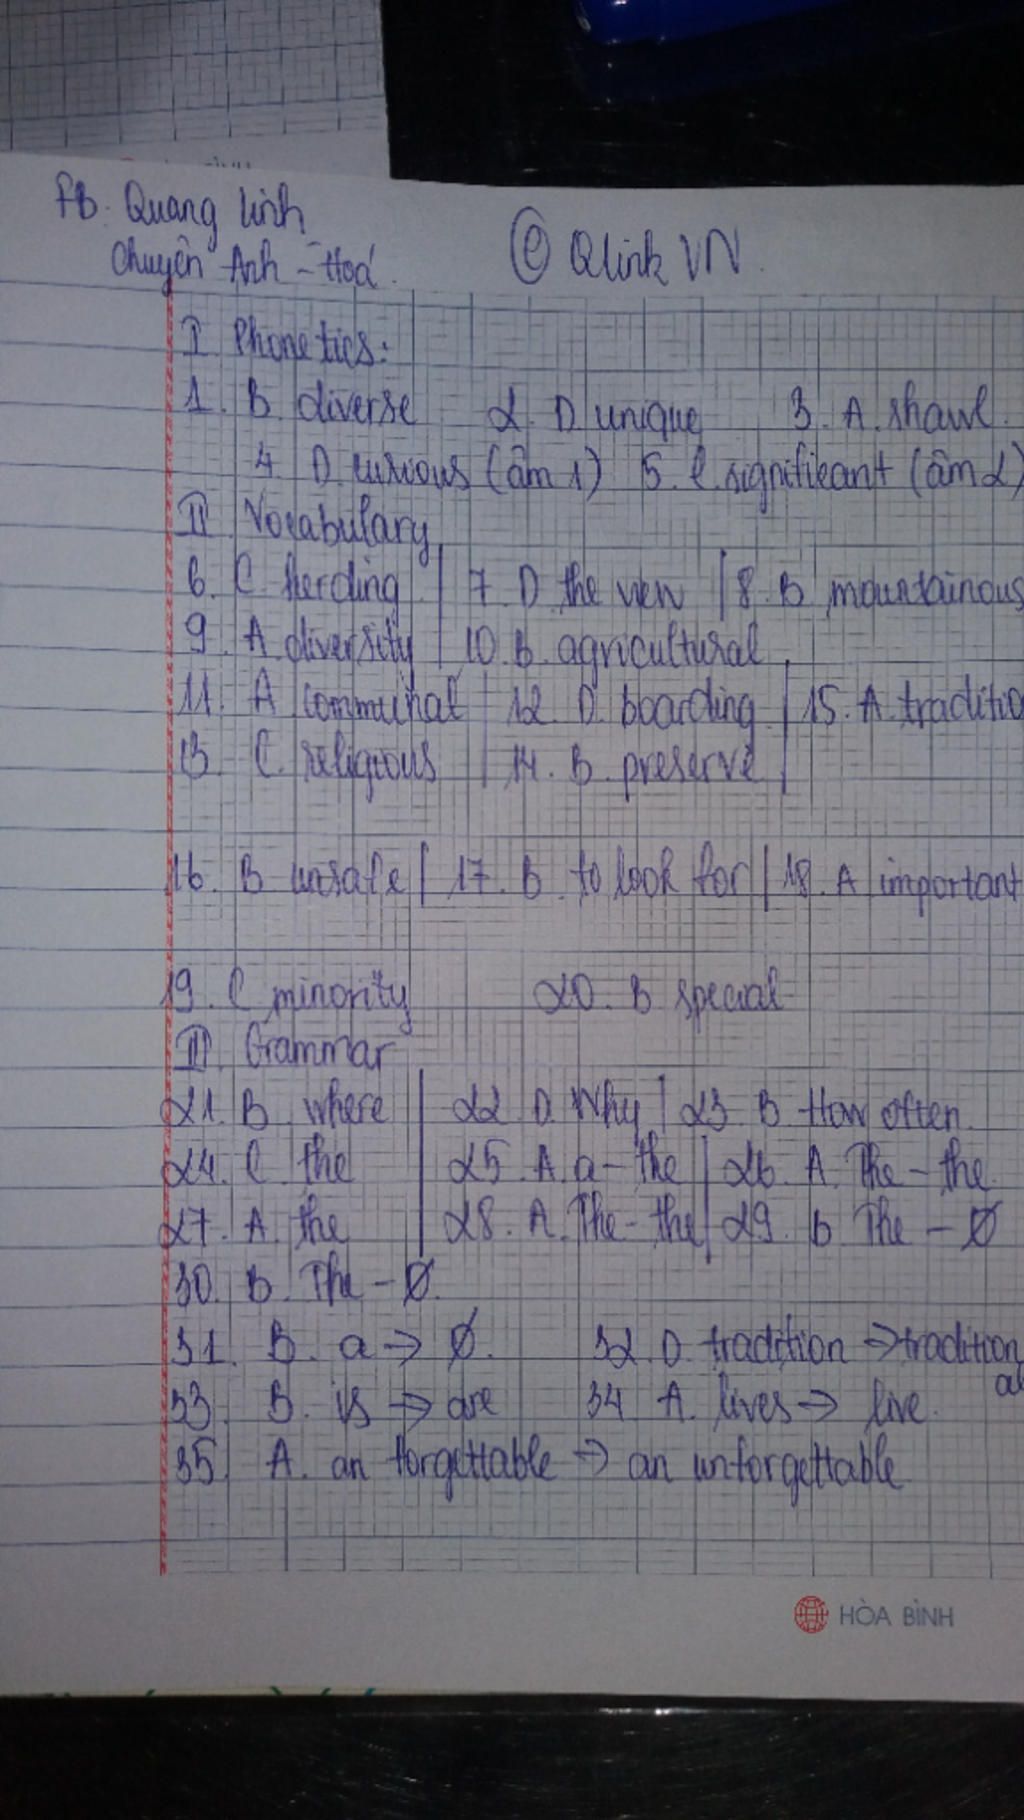 Fb. Quang Linh
Chuyên Anh - Hoá.
@ Qlink VN.
I Phonetics:
1. B diverse 2. D unique 3. A. shawl.
4. D. curious (âm 1) 5. C. significant (âm 2)
II Vocabulary
6. C herding | 7. D the view | 8. B mountainous
9. A diversity | 10. B. agricultural
11. A communal | 12. D. boarding | 15. A. traditio
13 C. religious | 14. B preserve |
16. B unsafe | 17. B to look for | 18. A important
19. C minority 20. B special
III Grammar
21. B where | 22 D. Why | 23 B How often
24. C the | 25. A. a - the | 26. A. The - the.
27. A. the | 28. A. The - the | 29. b The - Ø
30. B. The - Ø.
31. B. a → Ø. 32. D tradition → tradition
al
33. B. is → are 34 A. lives → live.
35. A. an forgettable → an unforgettable
HÒA BÌNH